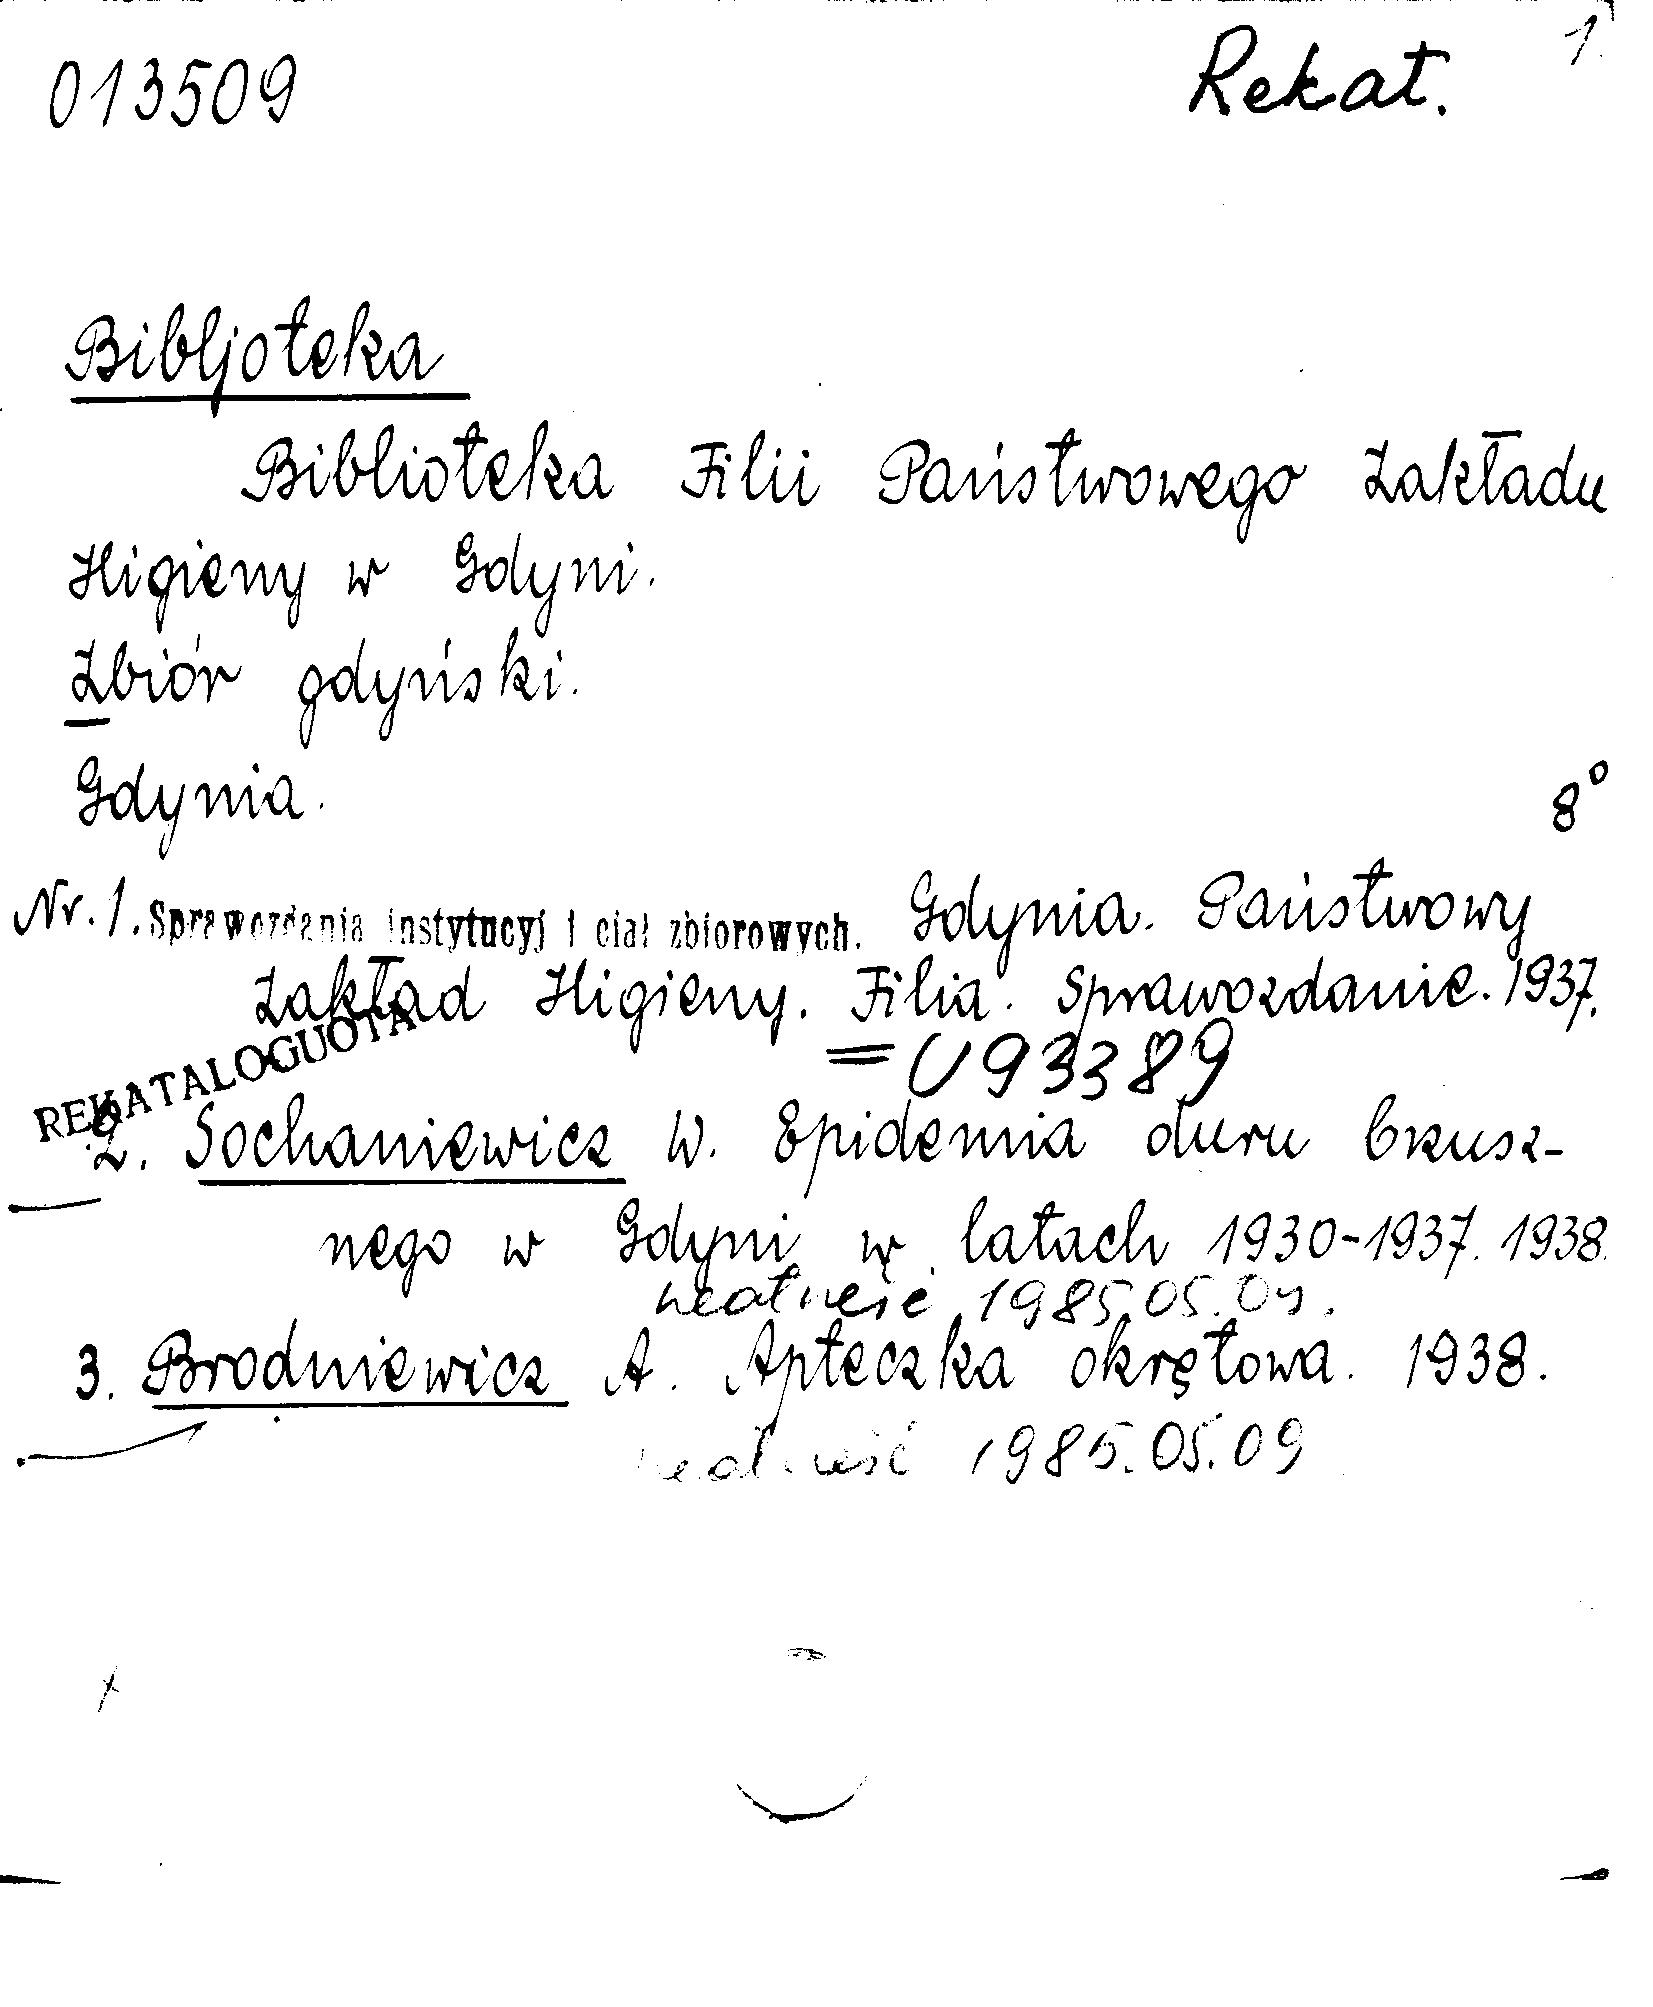 1.
013509 Rekat.
Bibljoteka
Biblioteka Filii Państwowego Zakładu
Higieny w Gdyni.
Zbiór gdyński.
Gdynia.
8°
Nr. 1. Sprawozdania instytucyj i ciał zbiorowych. Gdynia. Państwowy
Zakład Higieny. Filia. Sprawozdanie. 1937.
REKATALOGUOTA
= U93389
2. Sochaniewicz W. Epidemia duru brusz-
nego w Gdyni w latach 1930-1937. 1938.
1985.05.09.
3. Brodniewicz A. Apteczka okrętowa. 1938.
1985.05.09